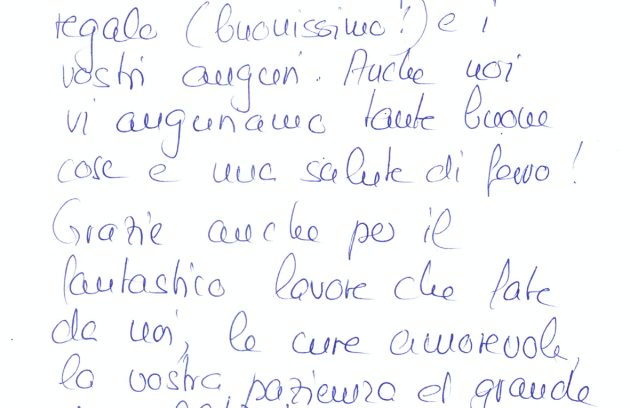 regalo (buonissimo!) e i
vostri auguri. Anche noi
vi auguriamo tante buone
cose e una salute di ferro!
Grazie anche per il
fantastico lavoro che fate
da noi, le cure amorevole,
la vostra pazienza et grande